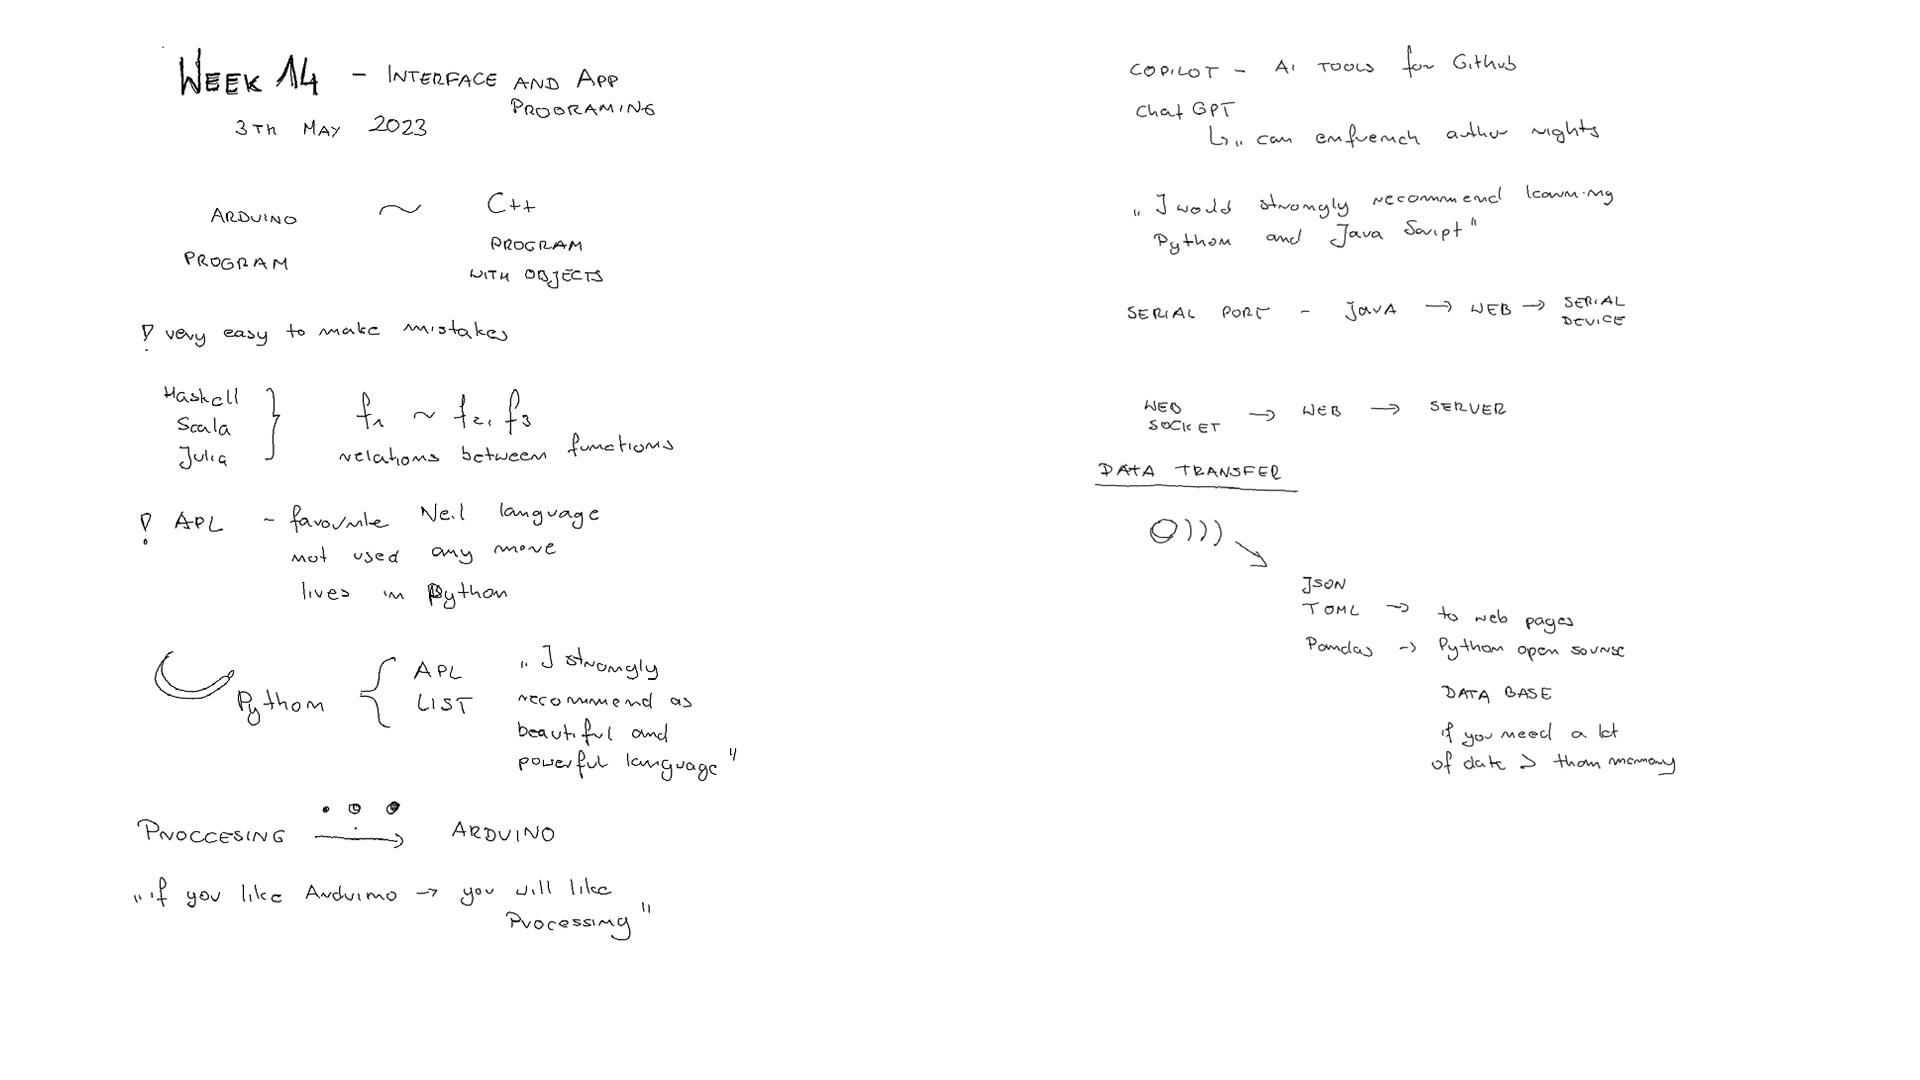 WEEK 14 - INTERFACE AND APP
PROGRAMING
3TH MAY 2023
ARDUINO ~ C++
PROGRAM
PROGRAM
WITH OBJECTS
! very easy to make mistakes
Haskell
Scala
Julia
} f1 ~ f2, f3
relations between functions
! APL - favourite Neil language
not used any more
lives in Python
Python { APL
LIST
„I strongly
recommend as
beautiful and
powerful language"
PROCCESING → ARDUINO
„if you like Arduino → you will like
Processing"
COPILOT - AI TOOLS for Github
Chat GPT
↳ „ can enfrench author rights
„I would strongly recommend learning
Python and Java Script"
SERIAL PORT - JAVA → WEB → SERIAL
DEVICE
WEB
SOCKET → WEB → SERVER
DATA TRANSFER
JSON
TOML → to web pages
Pandas → Python open sourse
DATA BASE
if you need a lot
of date > than memory